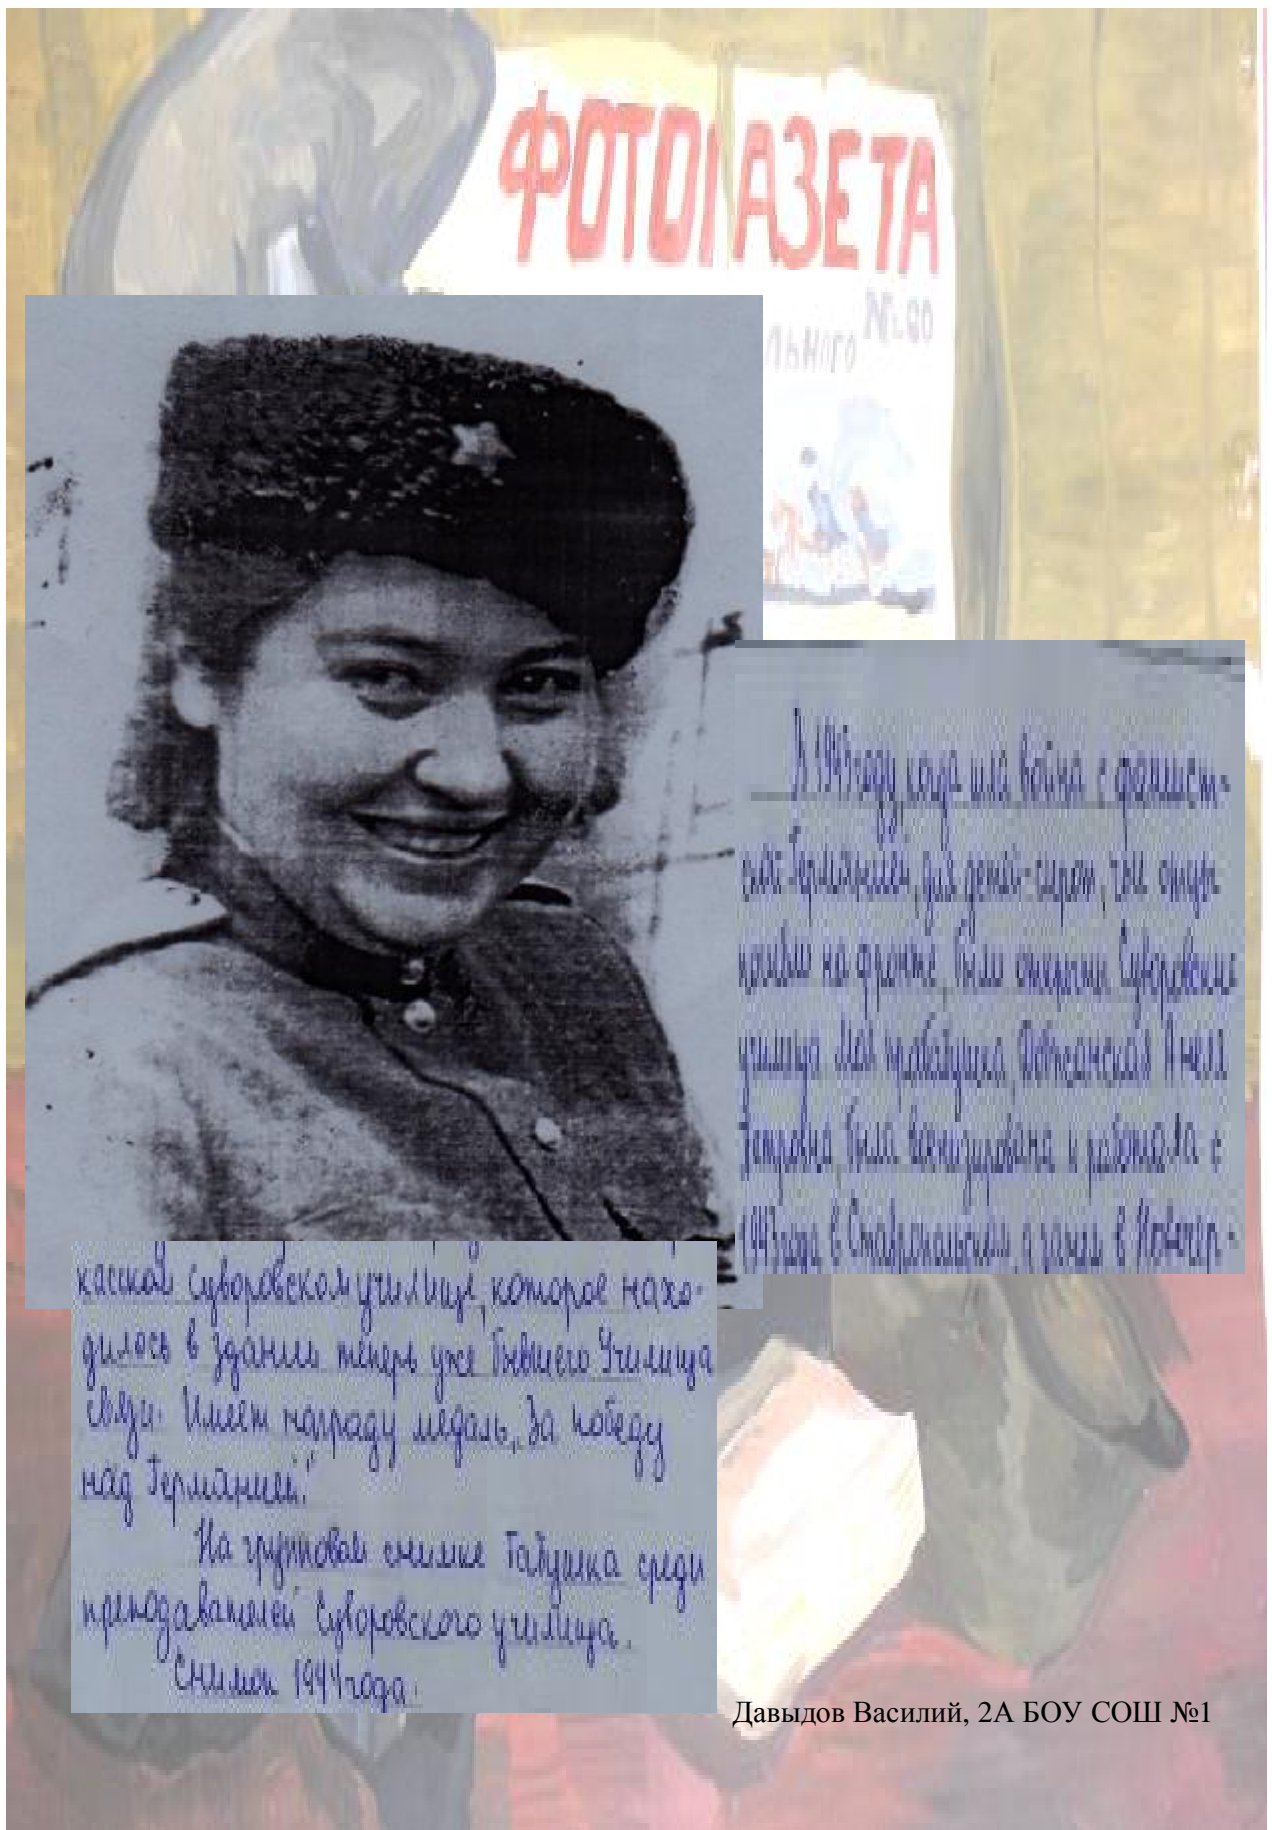 ФОТОГАЗЕТА
№60
льного
В 1943 году, когда шла война с фашист-
ской Германией, для детей-сирот, чьи отцы
погибли на фронте, были открыты Суворовские
училища. Моя прабабушка,
Петровна, была и работала с
1943 года в Ставропольском, а затем в Новочер-
касском суворовском училище, которое нахо-
дилось в здании теперь уже бывшего Училища
связи. Имеет награду медаль „За победу
над Германией."
На групповом снимке бабушка среди
преподавателей Суворовского училища.
Снимок 1944 года.
Давыдов Василий, 2А БОУ СОШ №1